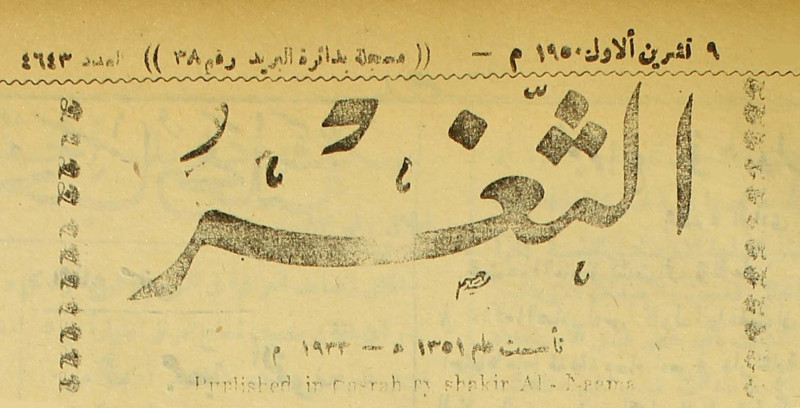 ٩ تشرين الاول ١٩٥٠ م — (( مسجلة بدائرة البريد رقم ٣٨ )) العدد ٤٦٤٣
الثَّغر
تأسست عام ١٣٥١ ه — ١٩٣٣ م
Published in Basrah by shakir Al - Naama